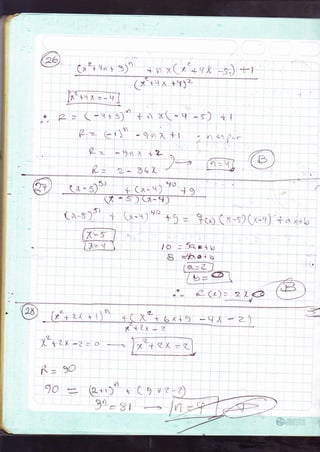 26
(x²+4x+3)ⁿ + nx(x²+4x-5) +1
(x²+4x+4)²
x²+4x=-4
∴ R = (-4+3)ⁿ + nx(-4-5) +1
R = (-1)ⁿ - 9nx +1 ; n es par
R = -9nx +2
R = 2 - 36x → n=4 B
27
(x-5)⁵¹ + (x-4)⁴⁰ +9
(x-5)(x-4)
(x-5)⁵¹ + (x-4)⁴⁰ +9 = q(x)(x-5)(x-4) + ax+b
x=5
x=4
10 = 5a+b
8 = 4a+b
a=2
b=0
∴ R(x) = 2x B
28
(x²+2x+1)ⁿ +(x²+6x+9 -4x-2)
x²+2x-2
x²+2x-2=0 → x²+2x=2
R = 90
90 = (2+1)ⁿ + (9+2-2)
3ⁿ = 81 → n=4